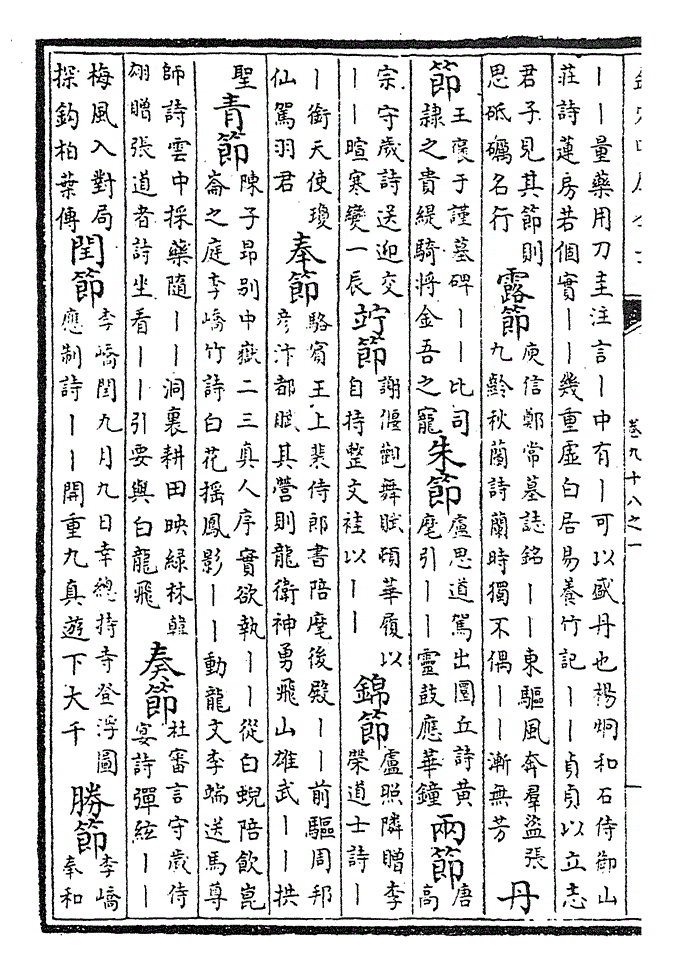 ｜｜量藥用刀圭注言｜中有｜可以盛丹也楊炯和石侍御山
莊詩蓮房若個實｜｜幾重虛白居易養竹記｜｜貞貞以立志
君子見其節則
思砥礪名行
露節
庾信鄭常墓誌銘｜｜東驅風奔羣盜張
九齡秋蘭詩蘭時獨不偶｜｜漸無芳
丹
節
王褒于謹墓碑｜｜比司
隸之貴緹騎將金吾之寵
朱節
盧思道駕出圜丘詩黃
麾引｜｜靈鼓應華鐘
兩節
唐
高
宗守歲詩送迎交
｜｜暄寒變一辰
竚節
謝偃觀舞賦頓華履以
自持整文袿以｜｜
錦節
盧照隣贈李
榮道士詩｜
｜銜天使瓊
仙駕羽君
奉節
駱賓王上裴侍郎書陪麾後殿｜｜前驅周邦
彦汴都賦其營則龍衛神勇飛山雄武｜｜拱
聖
青節
陳子昂别中嶽二三真人序實欲執｜｜從白蜺陪飲崑
崙之庭李嶠竹詩白花摇鳳影｜｜動龍文李端送馬尊
師詩雲中採藥隨｜｜洞裏耕田映緑林韓
翃贈張道者詩坐看｜｜引要與白龍飛
奏節
杜審言守歲侍
宴詩彈絃｜｜
梅風入對局
探鈎柏葉傳
閏節
李嶠閏九月九日幸總持寺登浮圖
應制詩｜｜開重九真遊下大千
勝節
李嶠
奉和
卷九十八之一